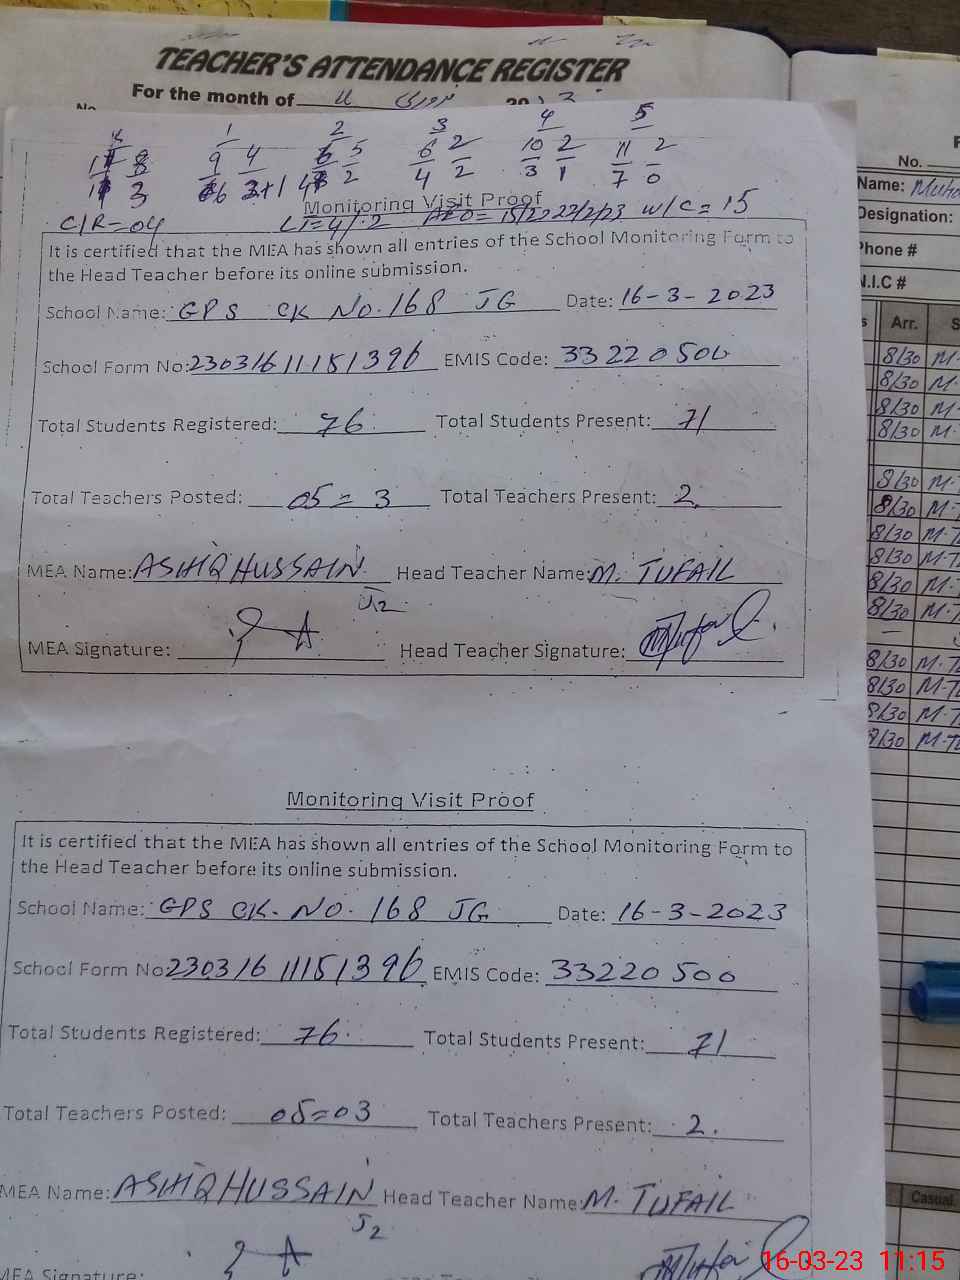 TEACHER'S ATTENDANCE REGISTER
For the month of فروری
No.
K 1 2 3 4 5
8 9 4 6 5 6 2 10 2 11 2
3 4 2 3 1 7 0
C/R=04 AEO= 15/2 22/2/23 w/c= 15
Monitoring Visit Proof
It is certified that the MEA has shown all entries of the School Monitoring Form to
the Head Teacher before its online submission.
School Name: GPS CK No. 168 JG Date: 16-3-2023
School Form No: 23031611151396 EMIS Code: 33220500
Total Students Registered: 76 Total Students Present: 71
Total Teachers Posted: 05=3 Total Teachers Present: 2
MEA Name: ASHIQ HUSSAIN Head Teacher Name: M. TUFAIL
J2
MEA Signature: Head Teacher Signature:
Monitoring Visit Proof
It is certified that the MEA has shown all entries of the School Monitoring Form to
the Head Teacher before its online submission.
School Name: GPS CK. NO. 168 JG Date: 16-3-2023
School Form No 23031611151396 EMIS Code: 33220500
Total Students Registered: 76 Total Students Present: 71
Total Teachers Posted: 05=03 Total Teachers Present: 2.
MEA Name: ASHIQ HUSSAIN Head Teacher Name: M. TUFAIL
J2
MEA Signature:
No.
Name:
Designation:
Phone #
N.I.C #
Arr.
8/30 M-
8/30 M-
8/30 M-
8/30 M-
8/30 M-
8/30 M-
8/30 M-T
8/30 M-T
8/30 M-
8/30 M-
8/30 M-T
8/30 M-T
8/30 M-T
8/30 M-T
Casual
16-03-23 11:15